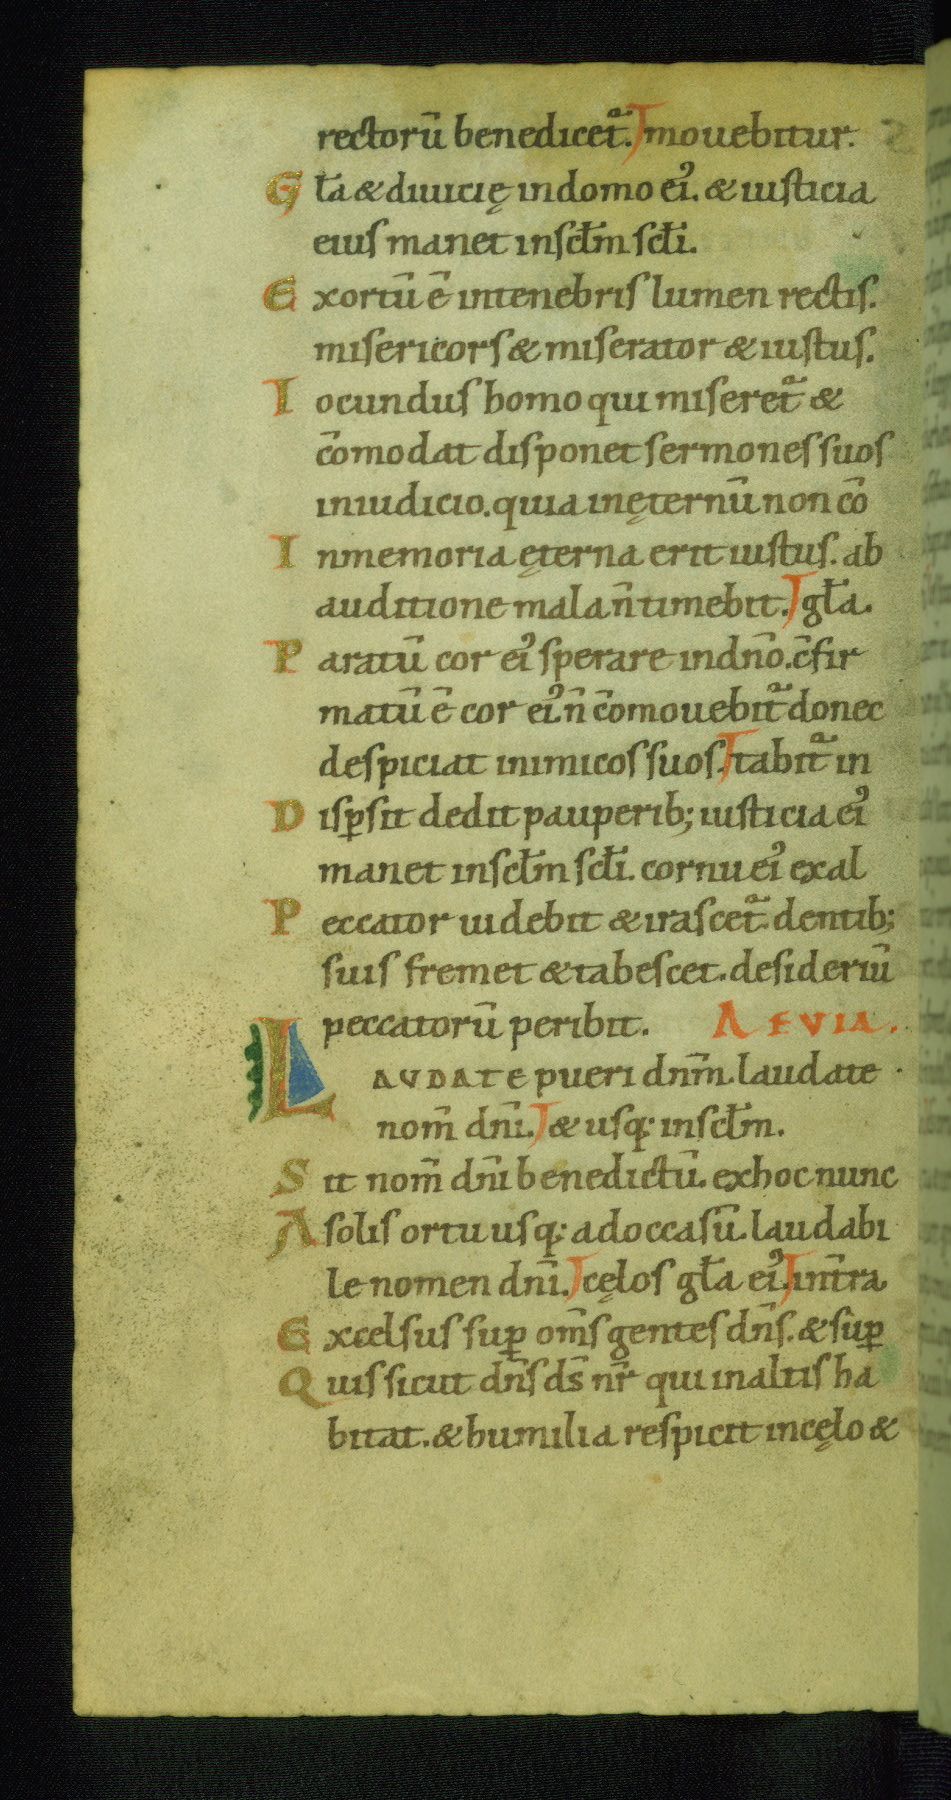 rectorū benedicet᷑. mouebitur.
Gła & diuicię in domo eiꝰ. & iusticia
eius manet in scłm scłi.
Exortū ē in tenebris lumen rectis.
misericors & miserator & iustus.
Iocundus homo qui miseret᷑ &
c̄omodat disponet sermones suos
in iudicio. quia in ęternū non cō
In memoria ęterna erit iustus. ab
auditione mala n̄ timebit. gła.
Paratū cor eiꝰ sperare in dn̄o. c̄fir
matū ē cor eiꝰ n̄ c̄omouebit᷑ donec
despiciat inimicos suos. tabit᷑ in
Disꝑsit dedit pauperib; iusticia eiꝰ
manet in scłm scłi. cornu eiꝰ exal
Peccator uidebit & irascet᷑. dentib;
suis fremet & tabescet. desideriū
peccatorū peribit. AEVIA.
LAUDATE pueri dn̄m. laudate
nom̄ dn̄i. & usq; in scłm.
Sit nom̄ dn̄i benedictū. ex hoc nunc
A solis ortu usq; ad occasū. laudabi
le nomen dn̄i. cęlos gła eiꝰ. in t̄ra
Excelsus suꝑ om̄s gentes dn̄s. & suꝑ
Quis sicut dn̄s ds̄ nr̄ qui in altis ha
bitat. & humilia respicit in cęlo &